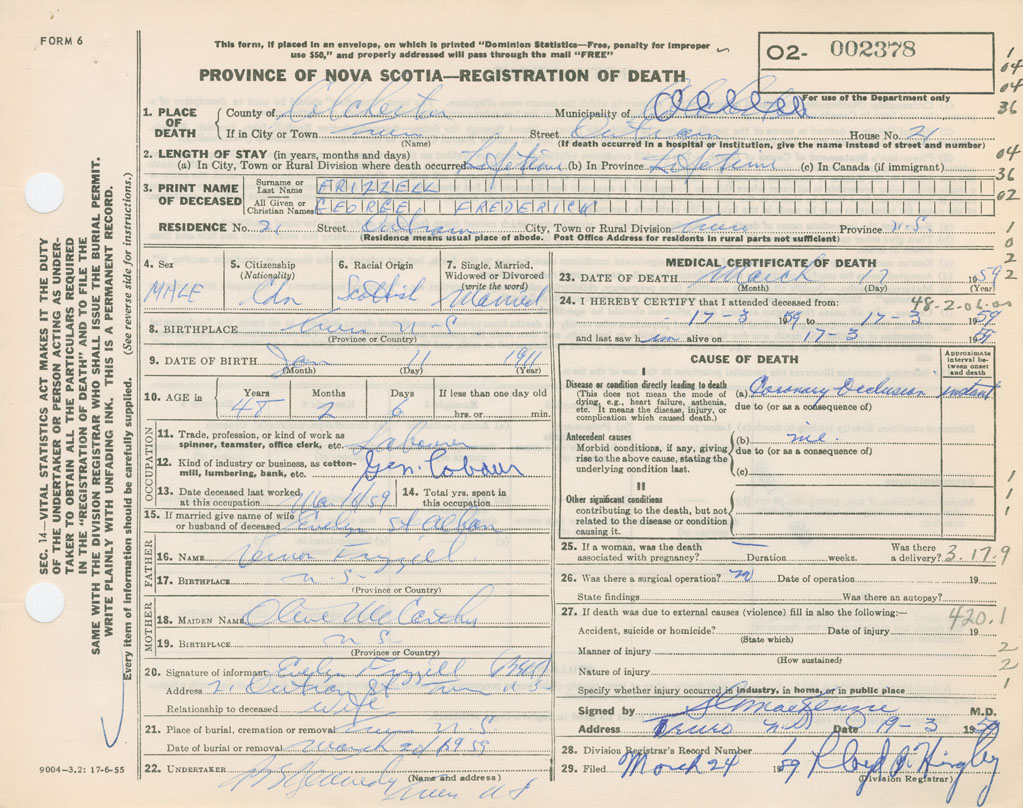 FORM 6
This form, if placed in an envelope, on which is printed "Dominion Statistics—Free, penalty for improper
use $50," and properly addressed will pass through the mail "FREE"
O2- 002378
For use of the Department only
PROVINCE OF NOVA SCOTIA—REGISTRATION OF DEATH
1. PLACE OF DEATH
County of Colchester Municipality of
If in City or Town Truro Street Outram House No. 21
(Name) (If death occurred in a hospital or institution, give the name instead of street and number)
2. LENGTH OF STAY (in years, months and days)
(a) In City, Town or Rural Division where death occurred Lifetime (b) In Province Lifetime (c) In Canada (if immigrant)
3. PRINT NAME OF DECEASED
Surname or Last Name FRIZZELL
All Given or Christian Names GEORGE FREDERICK
RESIDENCE No. 21 Street Outram City, Town or Rural Division Truro Province N.S.
(Residence means usual place of abode. Post Office Address for residents in rural parts not sufficient)
4. Sex
MALE
5. Citizenship
(Nationality)
Cdn
6. Racial Origin
Scottish
7. Single, Married,
Widowed or Divorced
(write the word)
Married
8. BIRTHPLACE Truro N-S
(Province or Country)
9. DATE OF BIRTH Jan 11 1911
(Month) (Day) (Year)
10. AGE in
Years Months Days If less than one day
48 2 6 hrs. or min.
OCCUPATION
11. Trade, profession, or kind of work as
spinner, teamster, office clerk, etc. Labourer
12. Kind of industry or business, as cotton-
mill, lumbering, bank, etc. Gen. Labour
13. Date deceased last worked
at this occupation /59
14. Total yrs. spent in
this occupation
15. If married give name of wife
or husband of deceased Evelyn St Alban
FATHER
16. NAME Vernon Frizzell
17. BIRTHPLACE N.S.
(Province or Country)
MOTHER
18. MAIDEN NAME Olive McCarthy
19. BIRTHPLACE N.S.
(Province or Country)
20. Signature of informant Evelyn Frizzell
Address 21 Outram St Truro N-S
Relationship to deceased Wife
21. Place of burial, cremation or removal Truro N.S
Date of burial or removal March 20 1959
22. UNDERTAKER Truro NS
(Name and address)
9004—3.2: 17-6-55
MEDICAL CERTIFICATE OF DEATH
23. DATE OF DEATH March 17 1959
(Month) (Day) (Year)
24. I HEREBY CERTIFY that I attended deceased from:
17-3 1959 to 17-3 1959
and last saw him alive on 17-3 1959
CAUSE OF DEATH
Approximate interval between onset and death
I
Disease or condition directly leading to death
(This does not mean the mode of
dying, e.g., heart failure, asthenia,
etc. It means the disease, injury, or
complication which caused death.)
(a) Coronary Occlusion instant
due to (or as a consequence of)
Antecedent causes
Morbid conditions, if any, giving
rise to the above cause, stating the
underlying condition last.
(b)
due to (or as a consequence of)
(c)
II
Other significant conditions
contributing to the death, but not
related to the disease or condition
causing it.
25. If a woman, was the death
associated with pregnancy? Duration weeks. Was there
a delivery? 3.17.9
26. Was there a surgical operation? no Date of operation 19
State findings Was there an autopsy?
27. If death was due to external causes (violence) fill in also the following:—
420.1
Accident, suicide or homicide? Date of injury 19
(State which)
Manner of injury
(How sustained)
Nature of injury
Specify whether injury occurred in industry, in home, or in public place
Signed by MacKenzie M.D.
Address Truro N.S. Date 19-3 1959
28. Division Registrar's Record Number
29. Filed March 24 1959 Lloyd Hingley
(Division Registrar)
SEC. 14—VITAL STATISTICS ACT MAKES IT THE DUTY
OF THE UNDERTAKER OR PERSON ACTING AS UNDER-
TAKER TO OBTAIN ALL THE PARTICULARS REQUIRED
IN THE "REGISTRATION OF DEATH" AND TO FILE THE
SAME WITH THE DIVISION REGISTRAR WHO SHALL ISSUE THE BURIAL PERMIT.
WRITE PLAINLY WITH UNFADING INK. THIS IS A PERMANENT RECORD.
Every item of information should be carefully supplied. (See reverse side for instructions.)
1
04
04
36
04
36
02
1
0
2
2
1
1
1
2
2
1